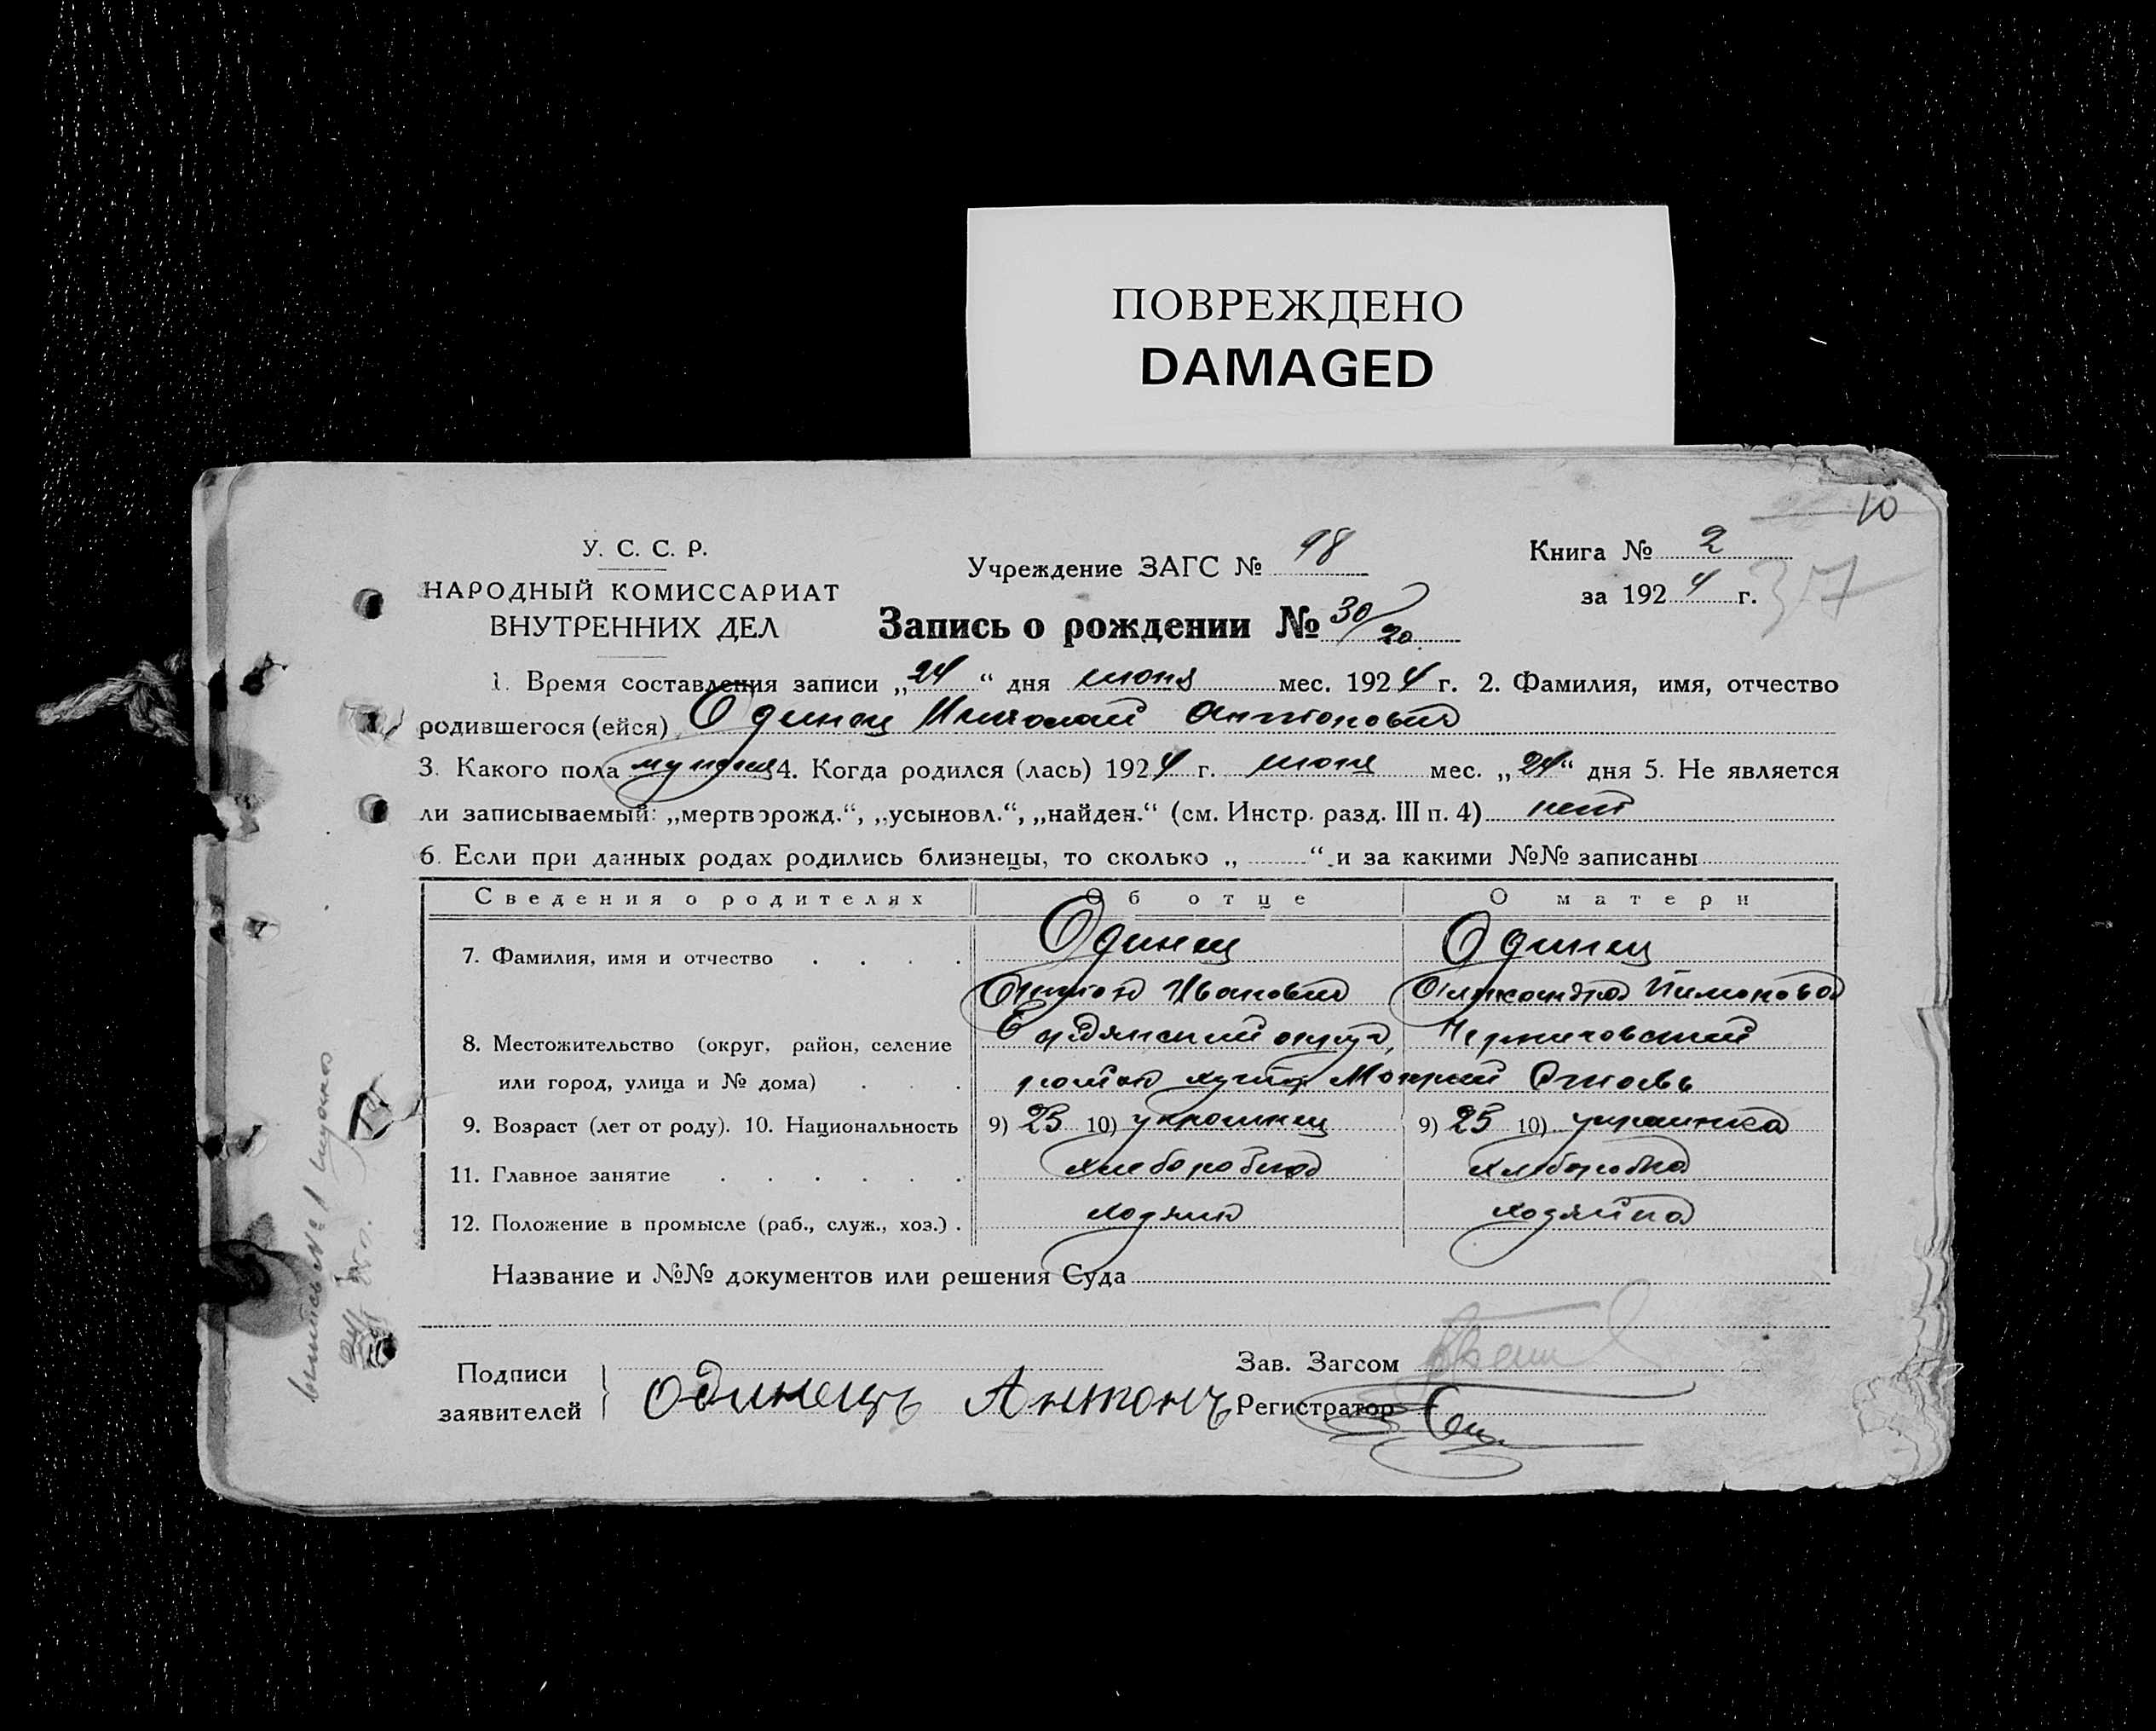 ПОВРЕЖДЕНО
DAMAGED
10
У. С. С. Р.
НАРОДНЫЙ КОМИССАРИАТ
ВНУТРЕННИХ ДЕЛ
Учреждение ЗАГС № 98
Книга № 2
за 1924 г.
37
Запись о рождении № 30/20
1. Время составления записи „24“ дня июня мес. 1924 г. 2. Фамилия, имя, отчество
родившегося (ейся) Одинец Николай Антонович
3. Какого пола мужчина 4. Когда родился (лась) 1924 г. июня мес. „24“ дня 5. Не является
ли записываемый: „мертворожд.“, „усыновл.“, „найден.“ (см. Инстр. разд. III п. 4) нет
6. Если при данных родах родились близнецы, то сколько „ “ и за какими №№ записаны
Сведения о родителях Об отце О матери
7. Фамилия, имя и отчество Одинец Одинец
Антон Иванович Александра Пимоновна
8. Местожительство (округ, район, селение Бердянский округ, Черниговский
или город, улица и № дома) район хутор Мокрый
9. Возраст (лет от роду). 10. Национальность 9) 25 10) украинец 9) 25 10) украинка
11. Главное занятие хлеборобство хлеборобка
12. Положение в промысле (раб., служ., хоз.) хозяин хозяйка
Название и №№ документов или решения Суда
Подписи
заявителей
Одинецъ Антонъ
Зав. Загсом
Регистратор